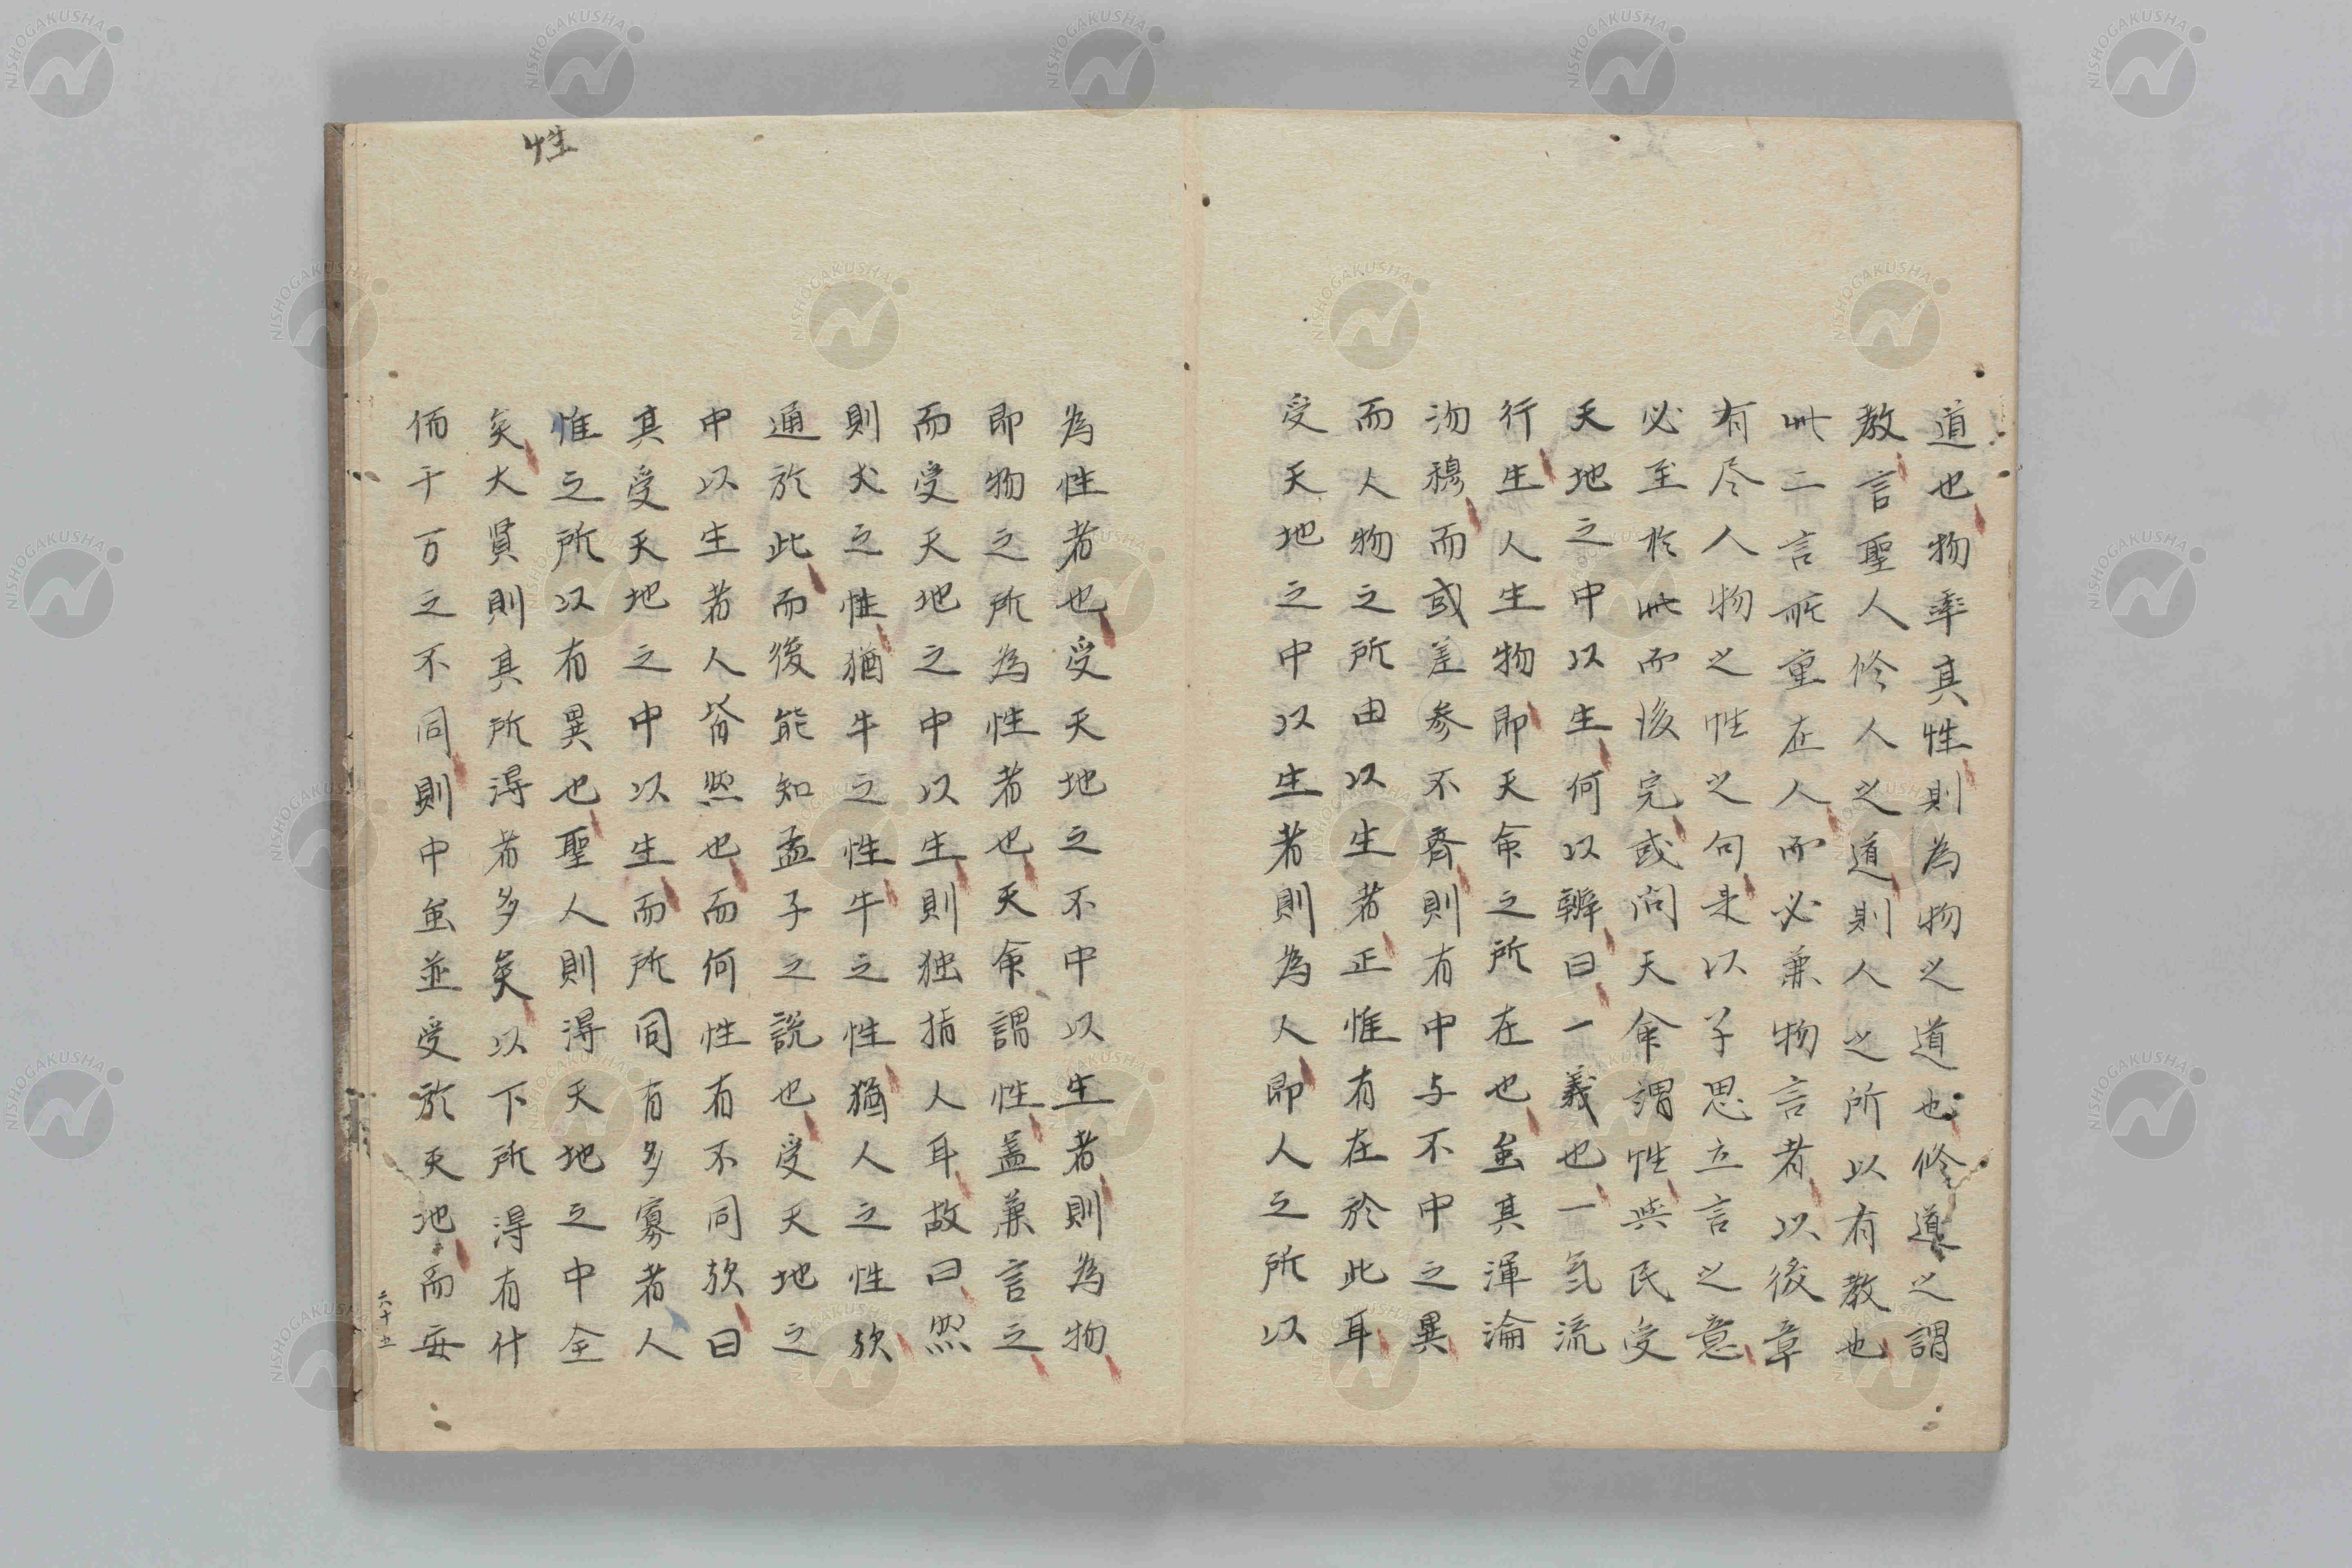 道也物率其性則為物之道也修道之謂
教言聖人修人之道則人之所以有教也
此二言所重在人而必兼物言者以後章
有尽人物之性之句是以子思立言之意
必至於此而後完或問天命謂性與民受
天地之中以生何以辨曰一義也一氣流
行生人生物即天命之所在也虽其渾淪
沕穆而或差参不齊則有中与不中之異
而人物之所由以生者正惟有在於此耳
受天地之中以生者則為人即人之所以
為性者也受天地之不中以生者則為物
即物之所為性者也天命謂性蓋兼言之
而受天地之中以生則独指人耳故曰然
則犬之性猶牛之性牛之性猶人之性欤
通於此而後能知孟子之説也受天地之
中以生者人皆然也而何性有不同欤曰
其受天地之中以生而所同有多寡者人
惟之所以有異也聖人則得天地之中全
矣大賢則其所得者多矣以下所得有什
佰千万之不同則中虽並受於天地而安
性
六十五
NISHOGAKUSHA